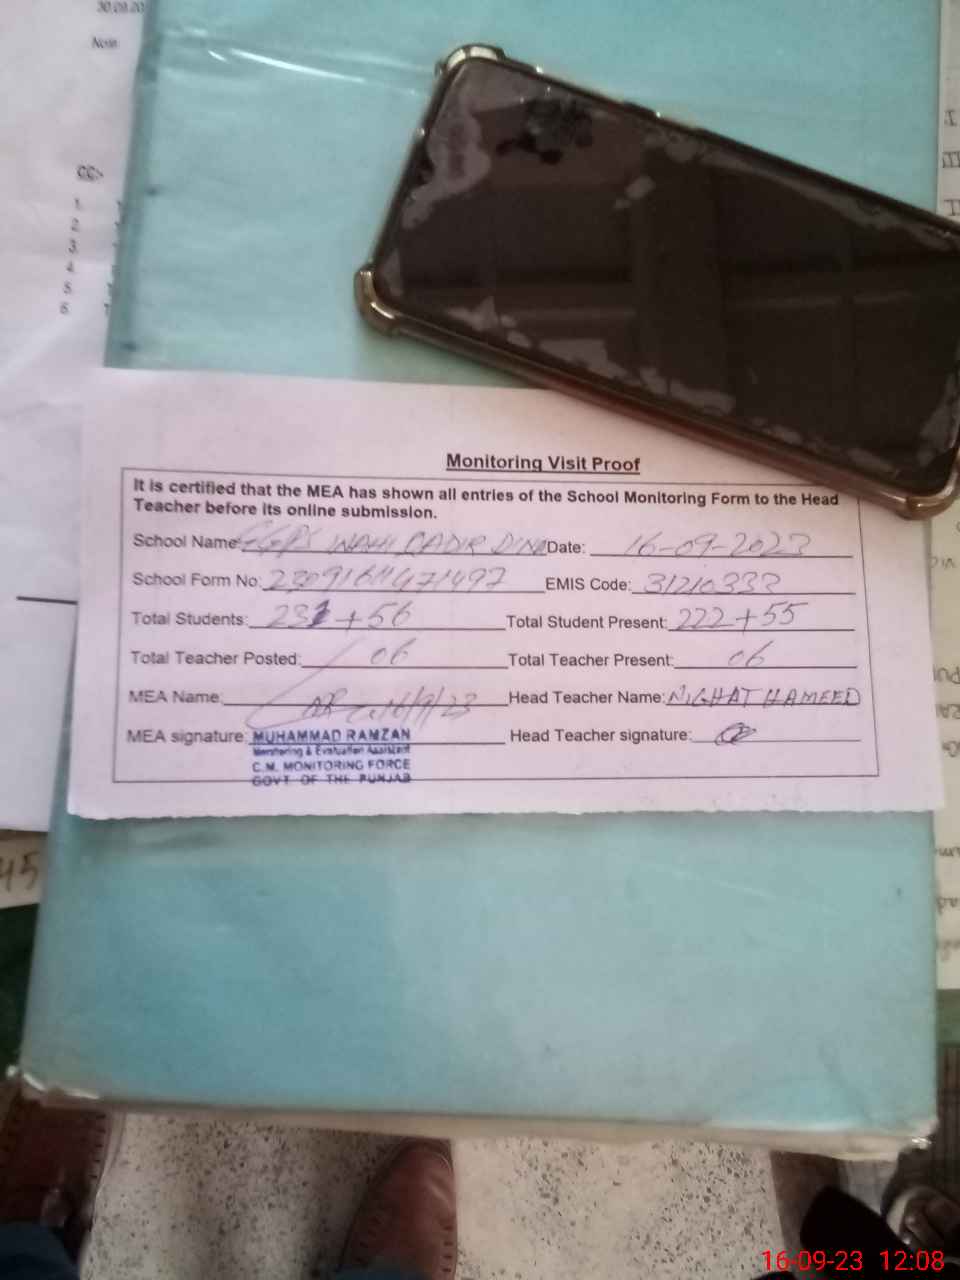 30.09.20
Note
CC:-
1.
2
3.
4.
5.
6.
Monitoring Visit Proof
It is certified that the MEA has shown all entries of the School Monitoring Form to the Head
Teacher before its online submission.
School Name: GGPS DIN Date: 16-09-2023
School Form No: EMIS Code: 31210333
Total Students: 231+56 Total Student Present: 222+55
Total Teacher Posted: 06 Total Teacher Present: 06
MEA Name: 16/9/23 Head Teacher Name: NIGHAT HAMEED
MEA signature: MUHAMMAD RAMZAN Head Teacher signature:
Monitoring & Evaluation Assistant
C.M. MONITORING FORCE
GOVT OF THE PUNJAB
45
16-09-23 12:08